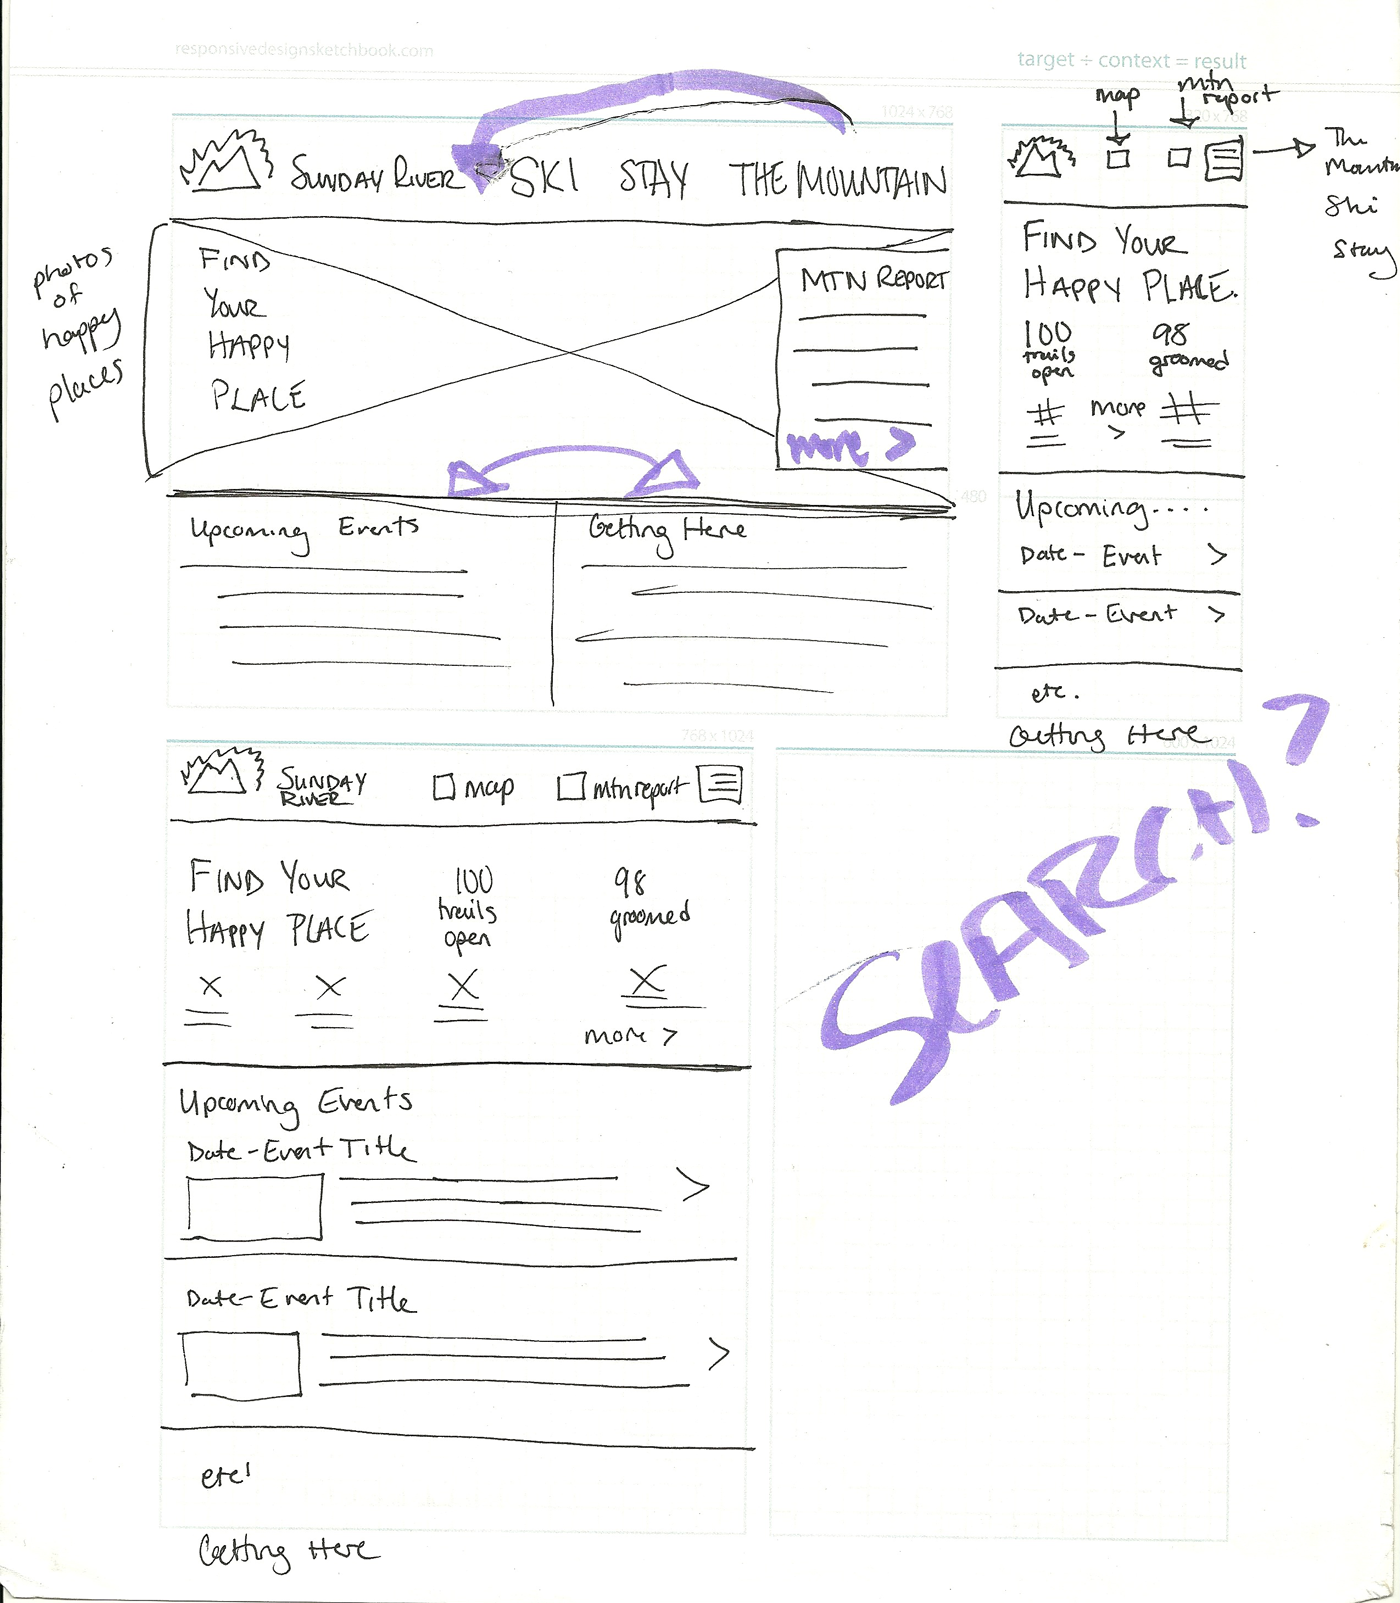 responsivedesignsketchbook.com
target ÷ context = result
1024 x 768
SUNDAY RIVER SKI STAY THE MOUNTAIN
photos
of
happy
places
FIND
YOUR
HAPPY
PLACE
MTN REPORT
more >
Upcoming Events
Getting Here
map
mtn
report
The
Mountn
Ski
Stay
FIND YOUR
HAPPY PLACE.
100
trails
open
98
groomed
#
more
>
#
480
Upcoming....
Date - Event >
Date - Event >
etc.
Getting Here
768 x 1024
SUNDAY
RIVER
map
mtn report
FIND YOUR
HAPPY PLACE
100
trails
open
98
groomed
X X X X
more >
Upcoming Events
Date - Event Title
>
Date - Event Title
>
etc!
Getting Here
SEARCH?